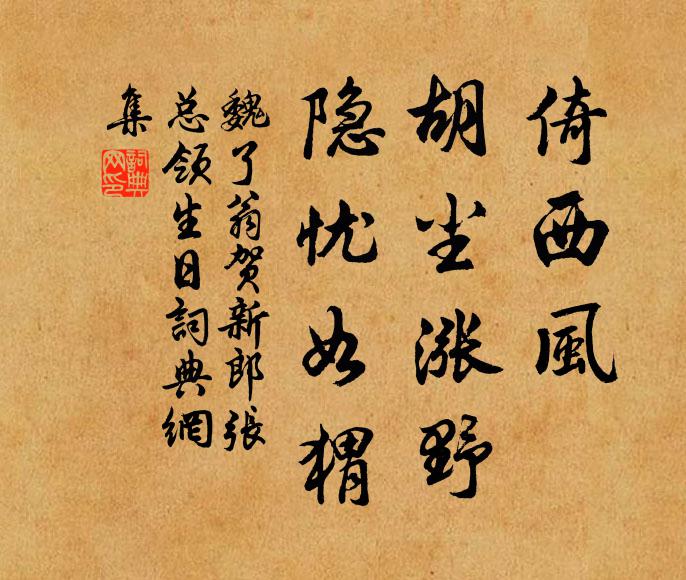 倚西風
胡尘漲野
隐忧如猬
魏了翁贺新郎張
总领生日詞典網
集
詞典網印